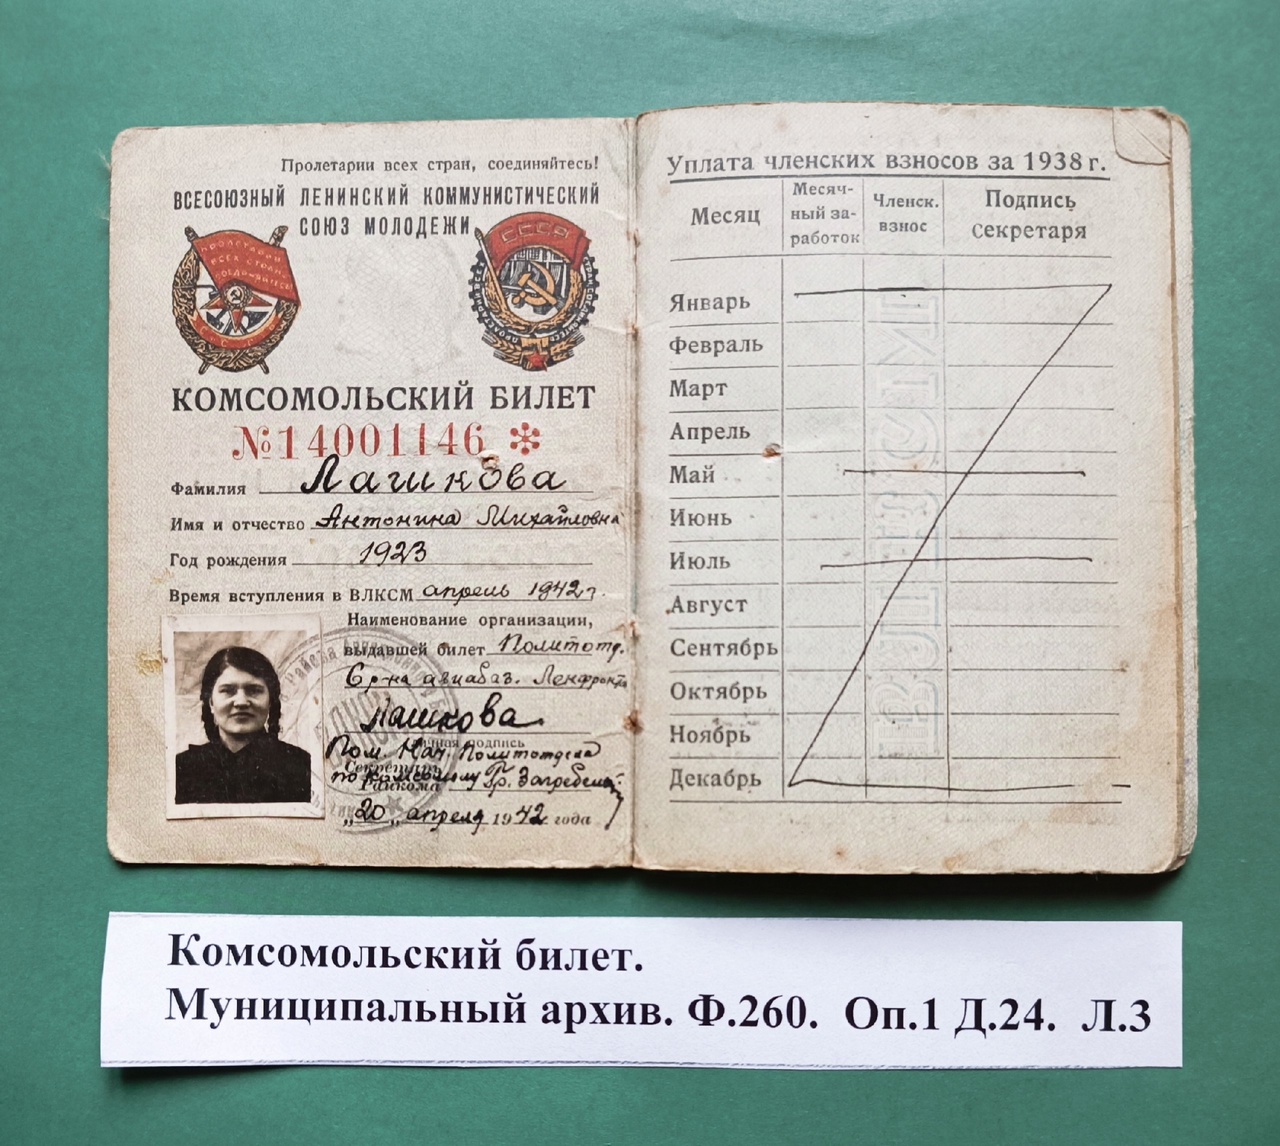 Пролетарии всех стран, соединяйтесь!
ВСЕСОЮЗНЫЙ ЛЕНИНСКИЙ КОММУНИСТИЧЕСКИЙ
СОЮЗ МОЛОДЕЖИ
ПРОЛЕТАРИИ
ВСЕХ СТРАН
СОЕДИНЯЙТЕСЬ!
СССР
КОМСОМОЛЬСКИЙ БИЛЕТ
№14001146
Фамилия Лашкова
Имя и отчество Антонина Михайловна
Год рождения 1923
Время вступления в ВЛКСМ апрель 1942 г.
Наименование организации,
выдавшей билет Политотд.
6 р-на авиабаз. Ленфронта
Лашкова
Личная подпись
Пом. Нач. Политотдела
Секретарь
по комсомолу Гр. Загребельн
Райкома
„20„ апреля 1942 года
Уплата членских взносов за 1938 г.
Месяц
Месяч-
ный за-
работок
Членск.
взнос
Подпись
секретаря
Январь
Февраль
Март
Апрель
Май
Июнь
Июль
Август
Сентябрь
Октябрь
Ноябрь
Декабрь
Комсомольский билет.
Муниципальный архив. Ф.260. Оп.1 Д.24. Л.3